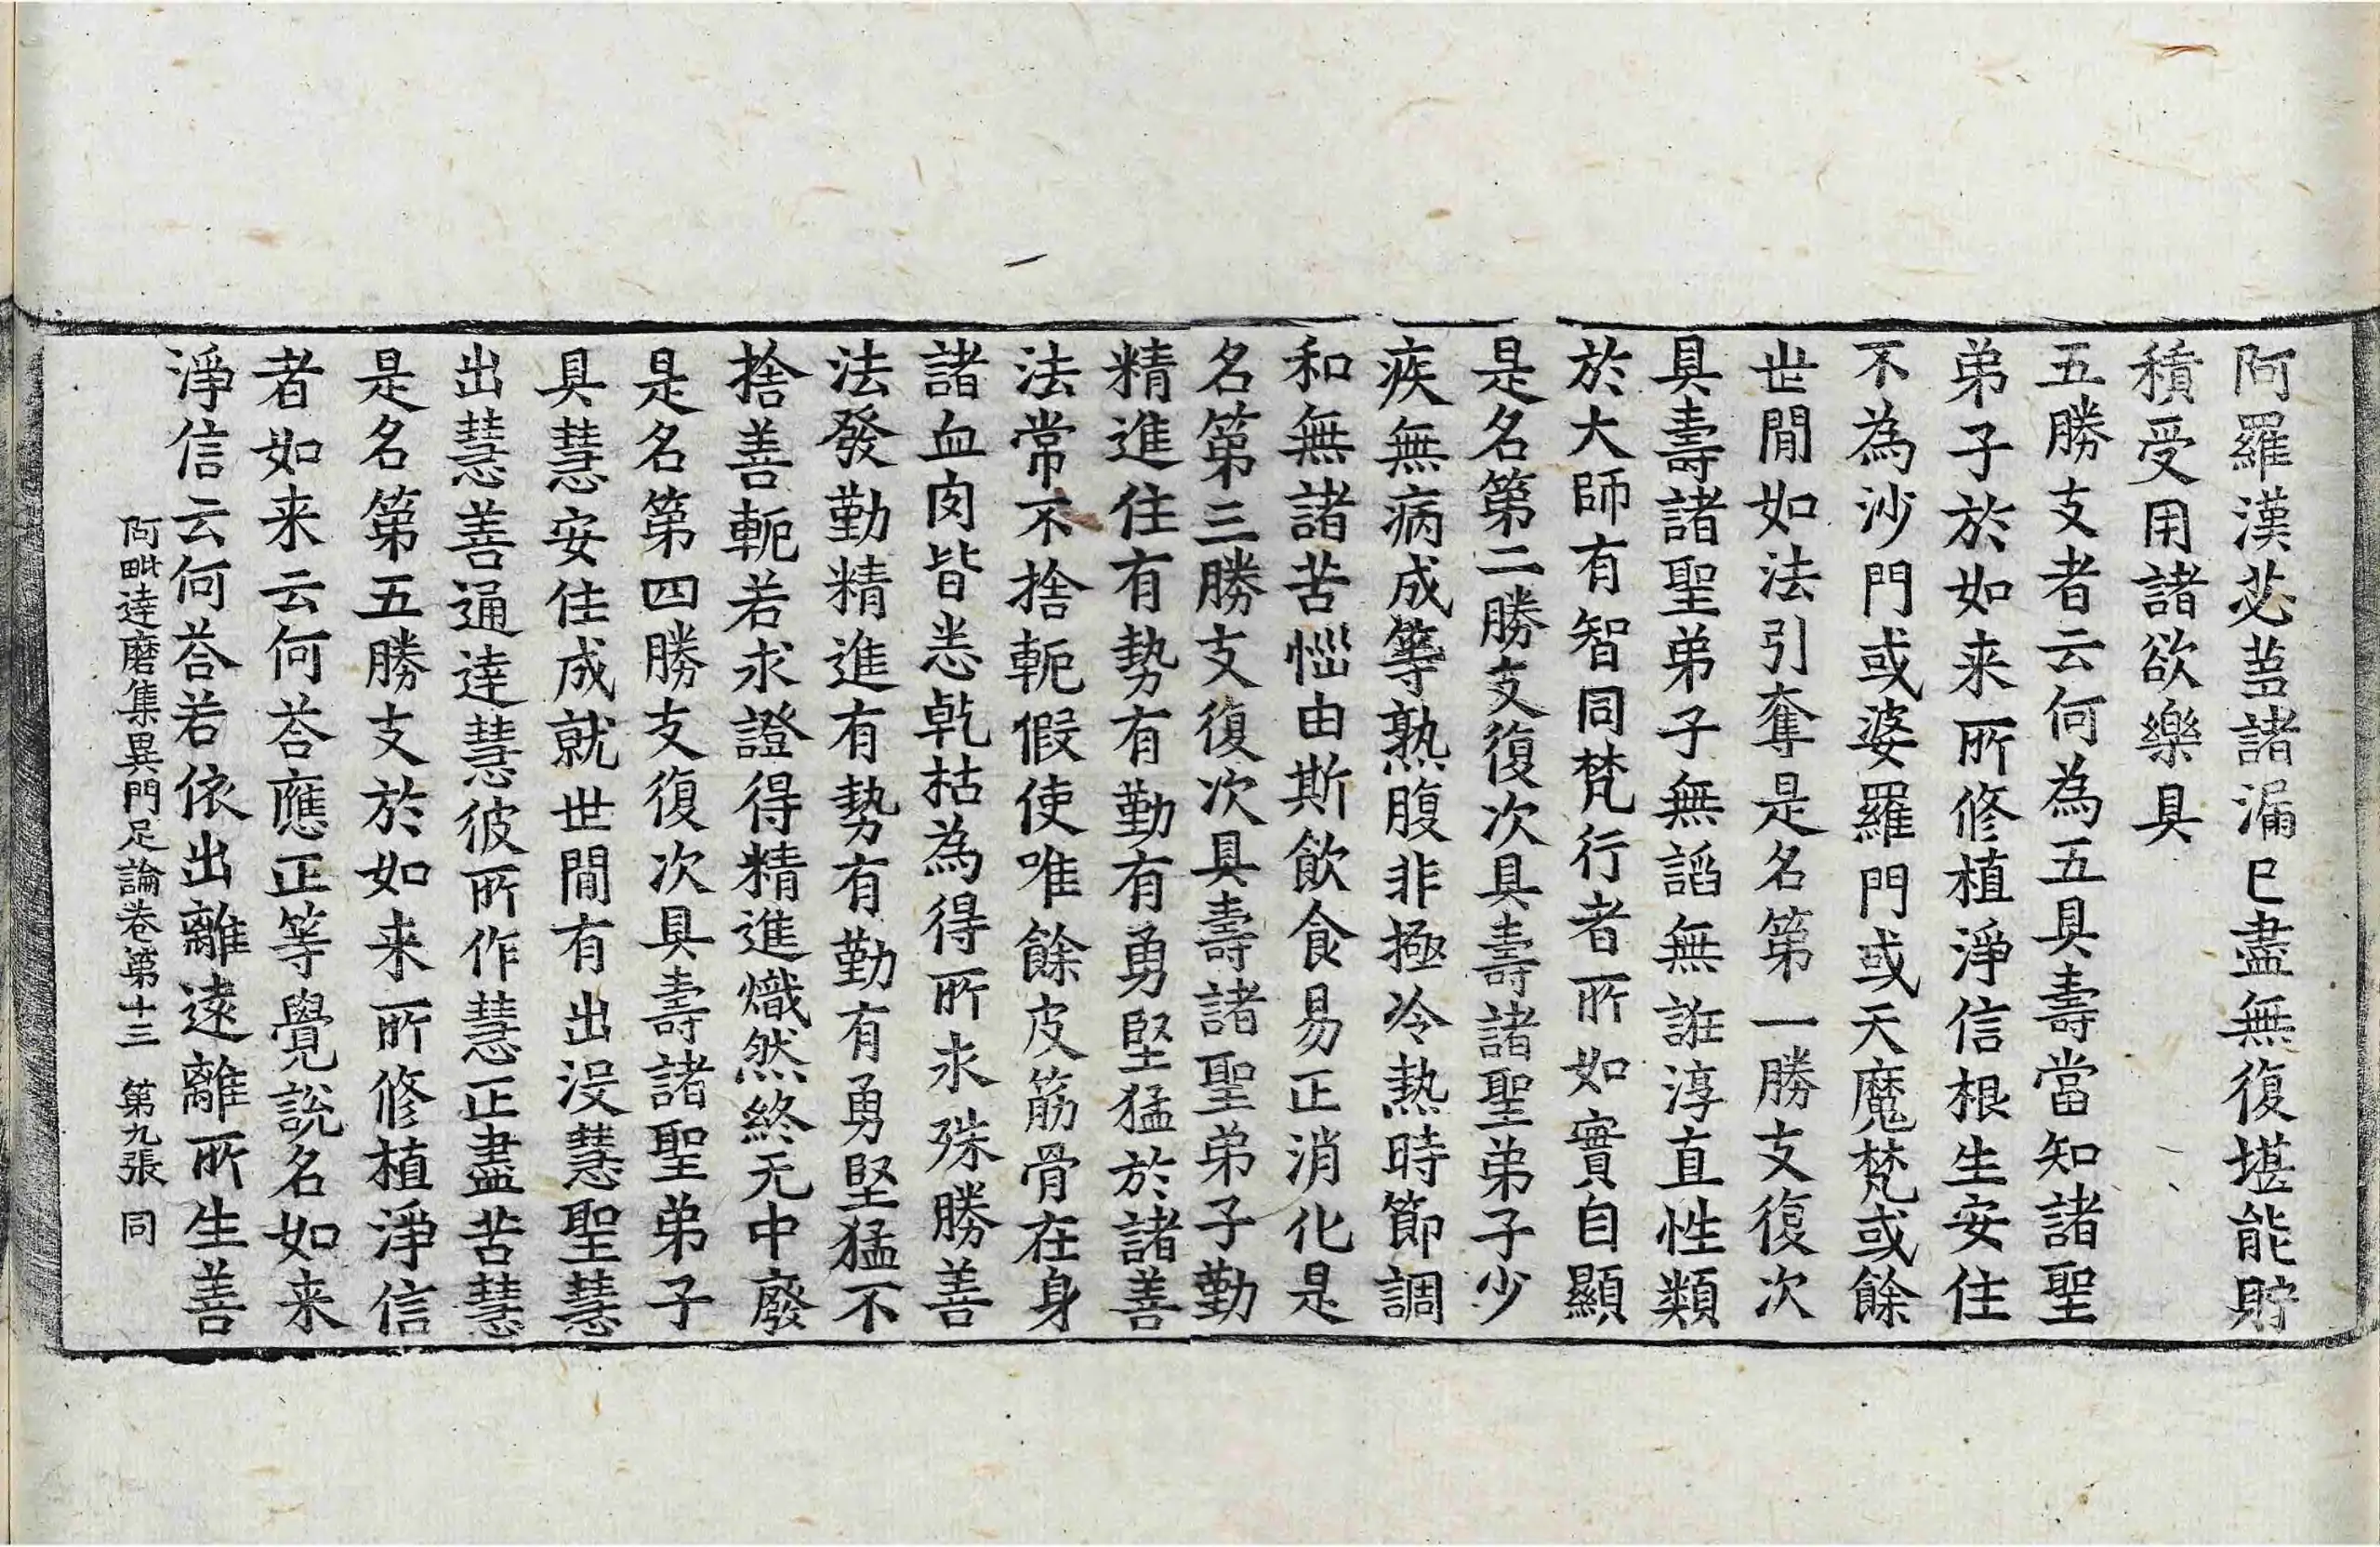 阿羅漢苾蒭諸漏已盡無復堪能貯
積受用諸欲樂具
五勝支者云何為五具壽當知諸聖
弟子於如来所修植淨信根生安住
不為沙門或婆羅門或天魔梵或餘
世閒如法引奪是名第一勝支復次
具壽諸聖弟子無諂無誑淳直性類
於大師有智同梵行者所如實自顯
是名第二勝支復次具壽諸聖弟子少
疾無病成等熟腹非極冷熱時節調
和無諸苦惱由斯飲食易正消化是
名第三勝支復次具壽諸聖弟子勤
精進住有勢有勤有勇堅猛於諸善
法常不捨軛假使唯餘皮筋骨在身
諸血肉皆悉乾枯為得所求殊勝善
法發勤精進有勢有勤有勇堅猛不
捨善軛若求證得精進熾然終无中廢
是名第四勝支復次具壽諸聖弟子
具慧安住成就世閒有出没慧聖慧
出慧善通達慧彼所作慧正盡苦慧
是名第五勝支於如来所修植淨信
者如来云何荅應正等覺說名如来
淨信云何荅若依出離遠離所生善
阿毗達磨集異門足論卷第十三 第九張 同